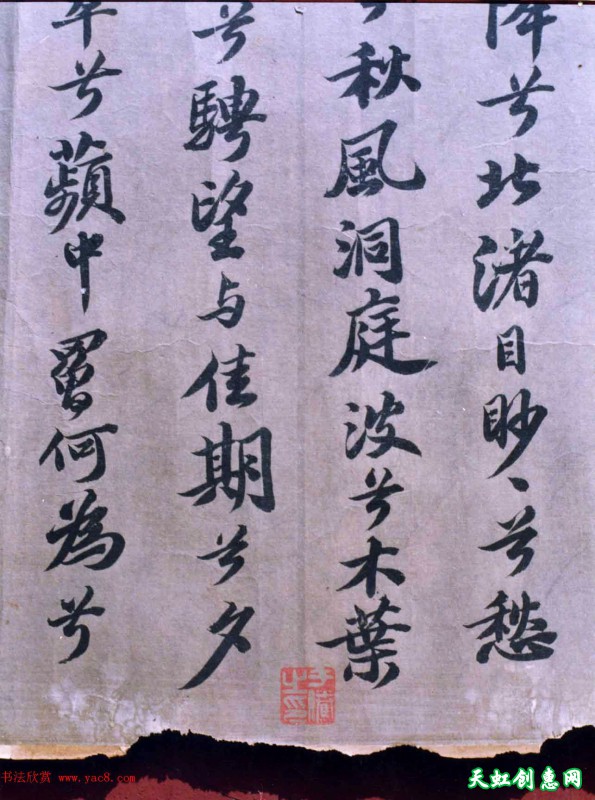 降兮北渚目眇々兮愁
兮秋風洞庭波兮木葉
兮騁望与佳期兮夕
萃兮蘋中罾何為兮
书法欣赏 www.yac8.com
天虹创意网